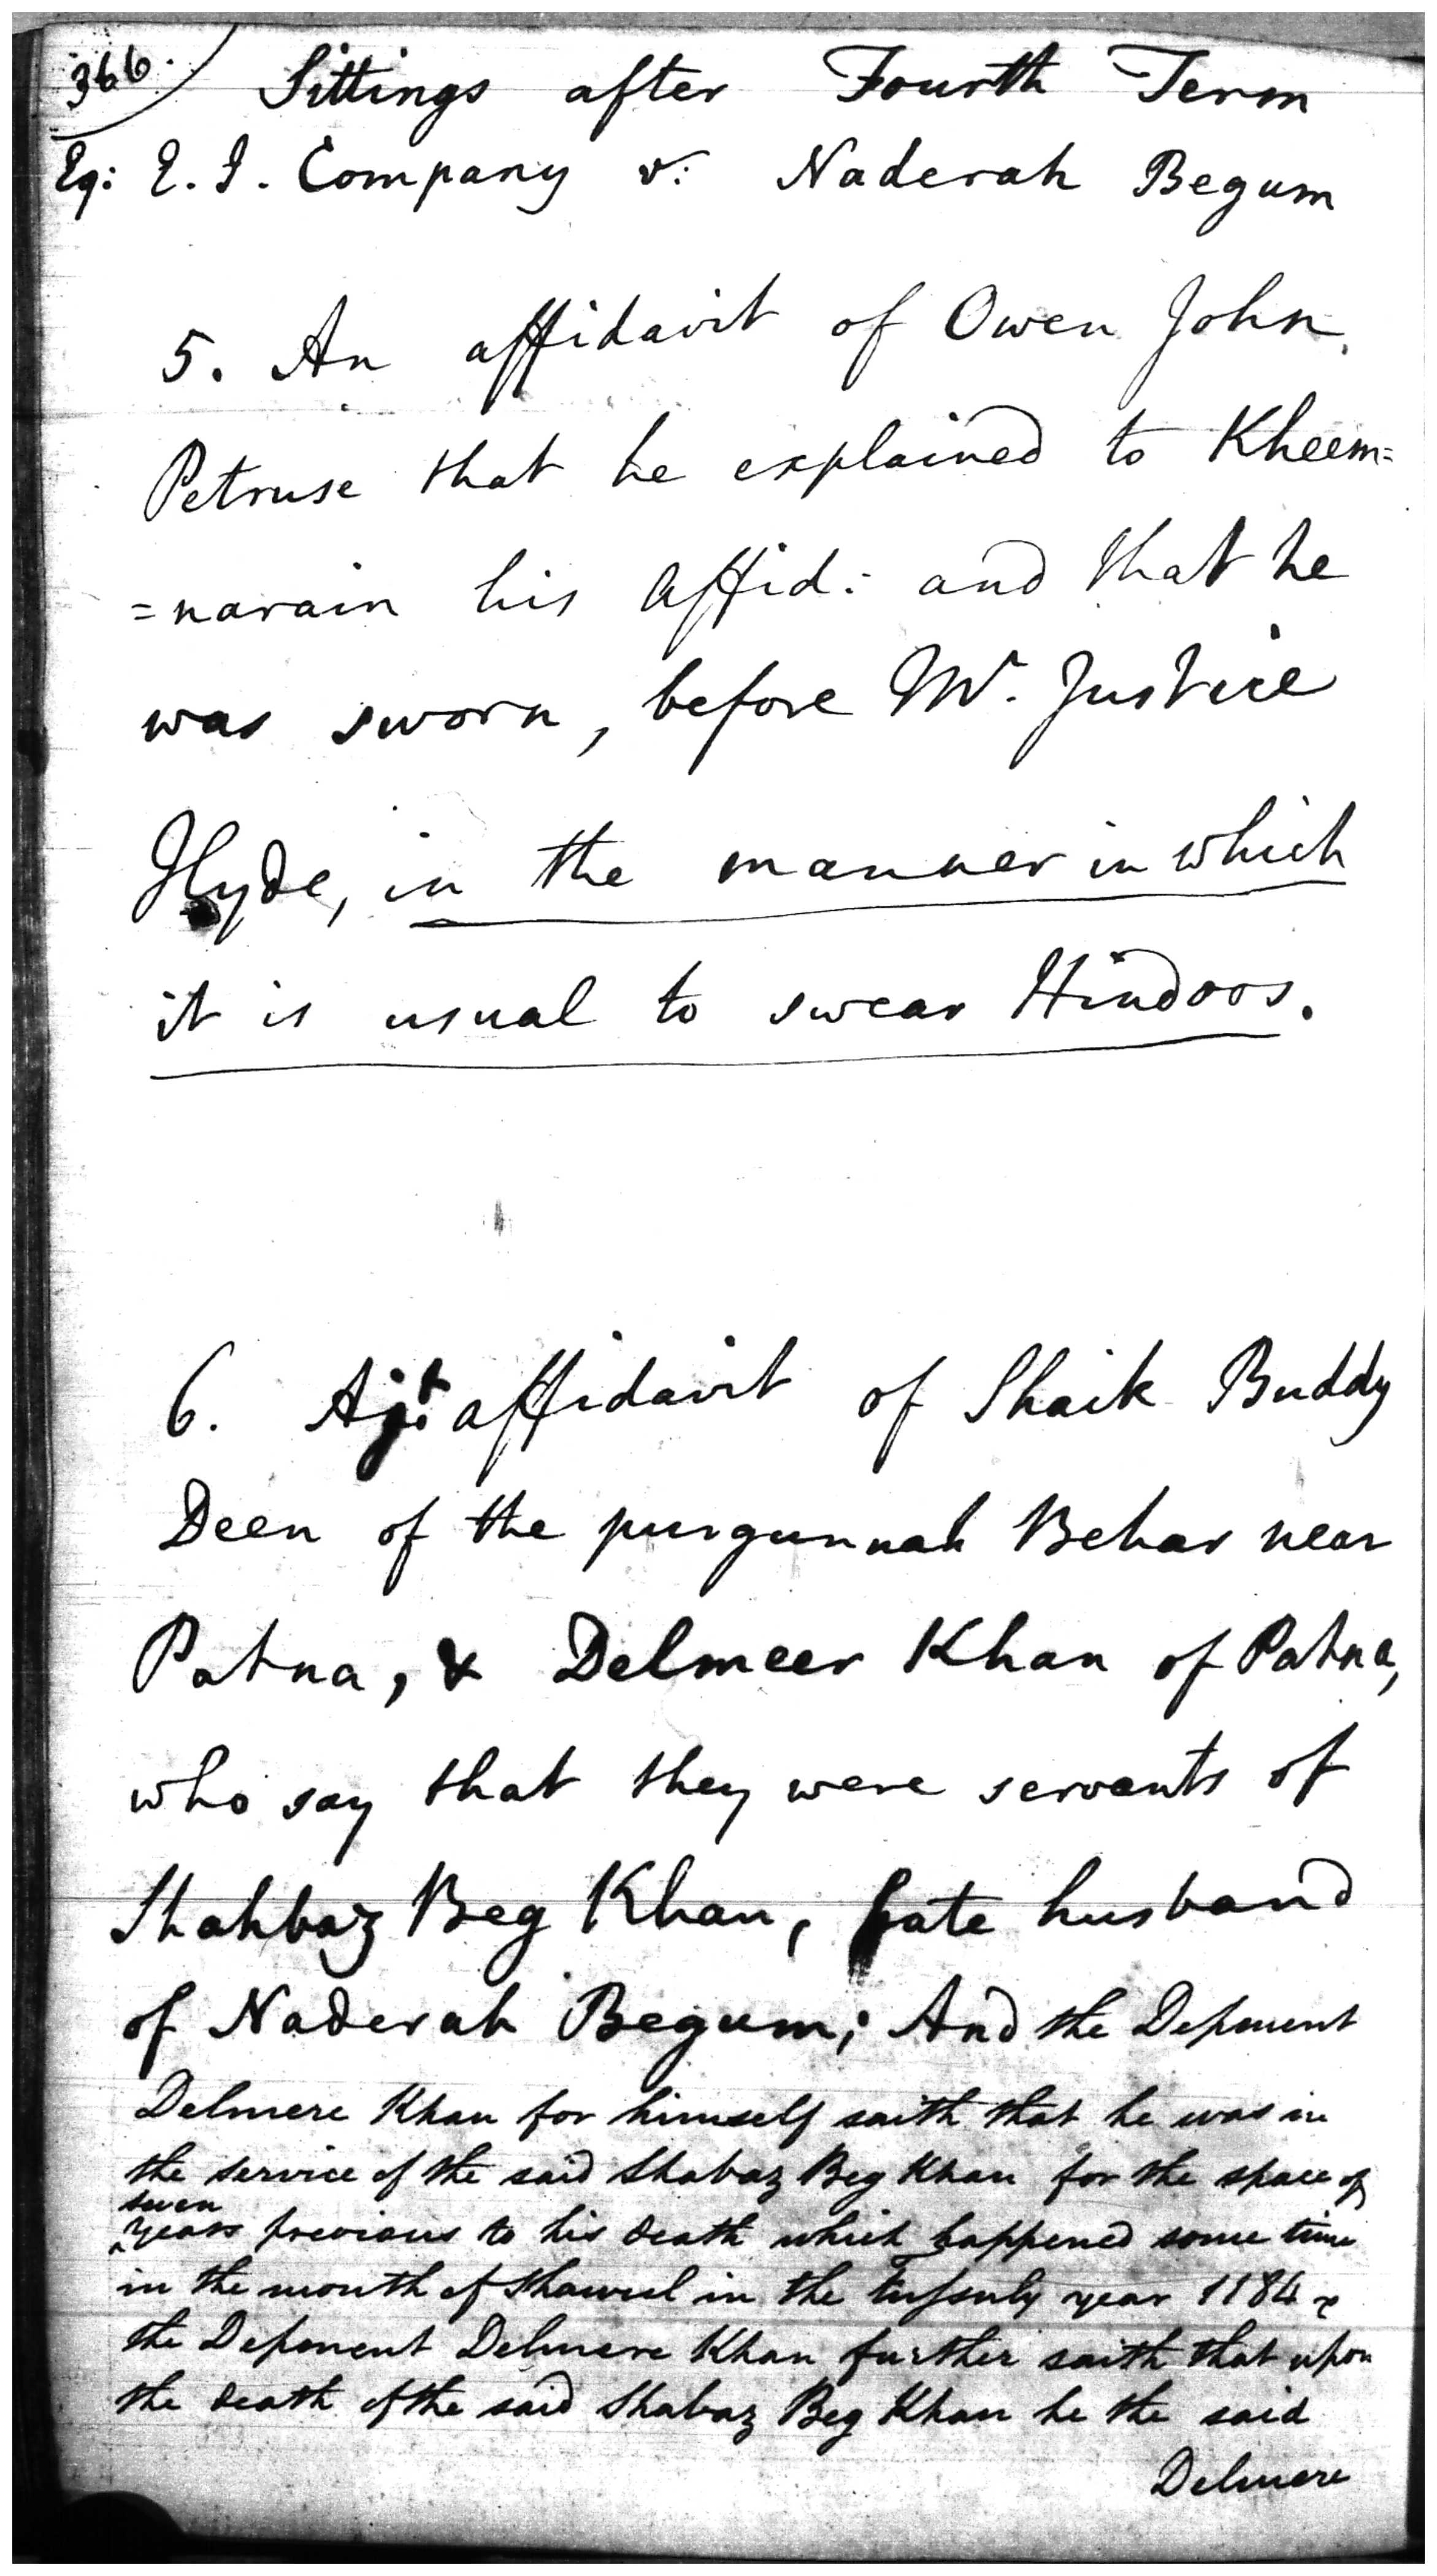 366.
Sittings after Fourth Term
Eq: E. I. Company v: Naderah Begum
5. An affidavit of Owen John
Petruse that he explained to Kheem=
=narain his affid: and that he
was sworn, before Mr. Justice
Hyde, in the manner in which
it is usual to swear Hindoos.
6. A jt: affidavit of Shaik Buddy
Deen of the purgunnah Behar near
Patna, & Delmeer Khan of Patna,
who say that they were servants of
Shahbaz Beg Khan, late husband
of Naderah Begum; And the Deponent
Delmere Khan for himself saith that he was in
the service of the said Shabaz Beg Khan for the space of
seven
years previous to his death which happened some time
in the month of Shawul in the year 1184 &
the Deponent Delmere Khan further saith that upon
the death of the said Shabaz Beg Khan he the said
Delmere